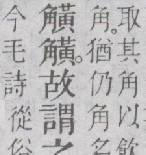 取其角以飲
角。猶仍角名
觵觵。故謂之
今毛詩從俗